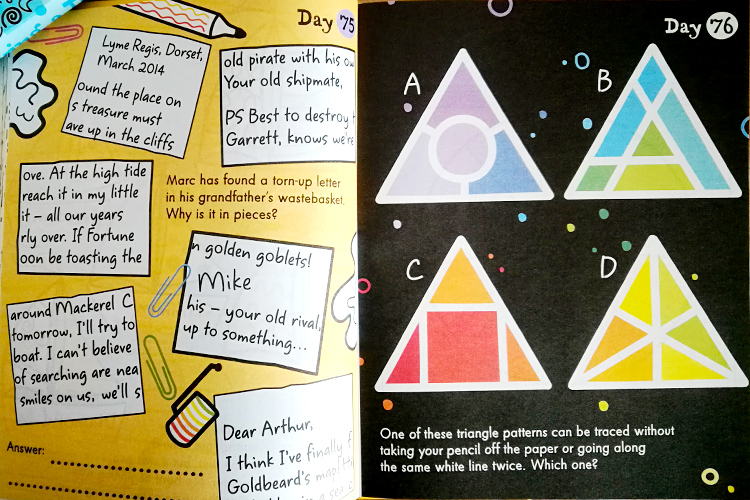 Day 75
Lyme Regis, Dorset,
March 2014
ound the place on
s treasure must
ave up in the cliffs
old pirate with his ow
Your old shipmate,
PS Best to destroy t
Garrett, knows we're
ove. At the high tide
reach it in my little
it – all our years
rly over. If Fortune
oon be toasting the
Marc has found a torn-up letter
in his grandfather's wastebasket.
Why is it in pieces?
n golden goblets!
Mike
his – your old rival,
up to something...
around Mackerel C
tomorrow, I'll try to
boat. I can't believe
of searching are nea
smiles on us, we'll s
Dear Arthur,
I think I've finally f
Goldbeard's map
Answer:
Day 76
A
B
C
D
One of these triangle patterns can be traced without
taking your pencil off the paper or going along
the same white line twice. Which one?